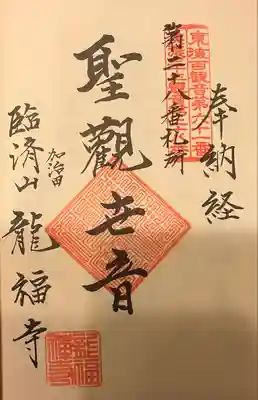 奉納経
東濃百観音第九十一番
第二十八番札所
聖觀世音
加治田
臨済山龍福寺
龍福禅寺